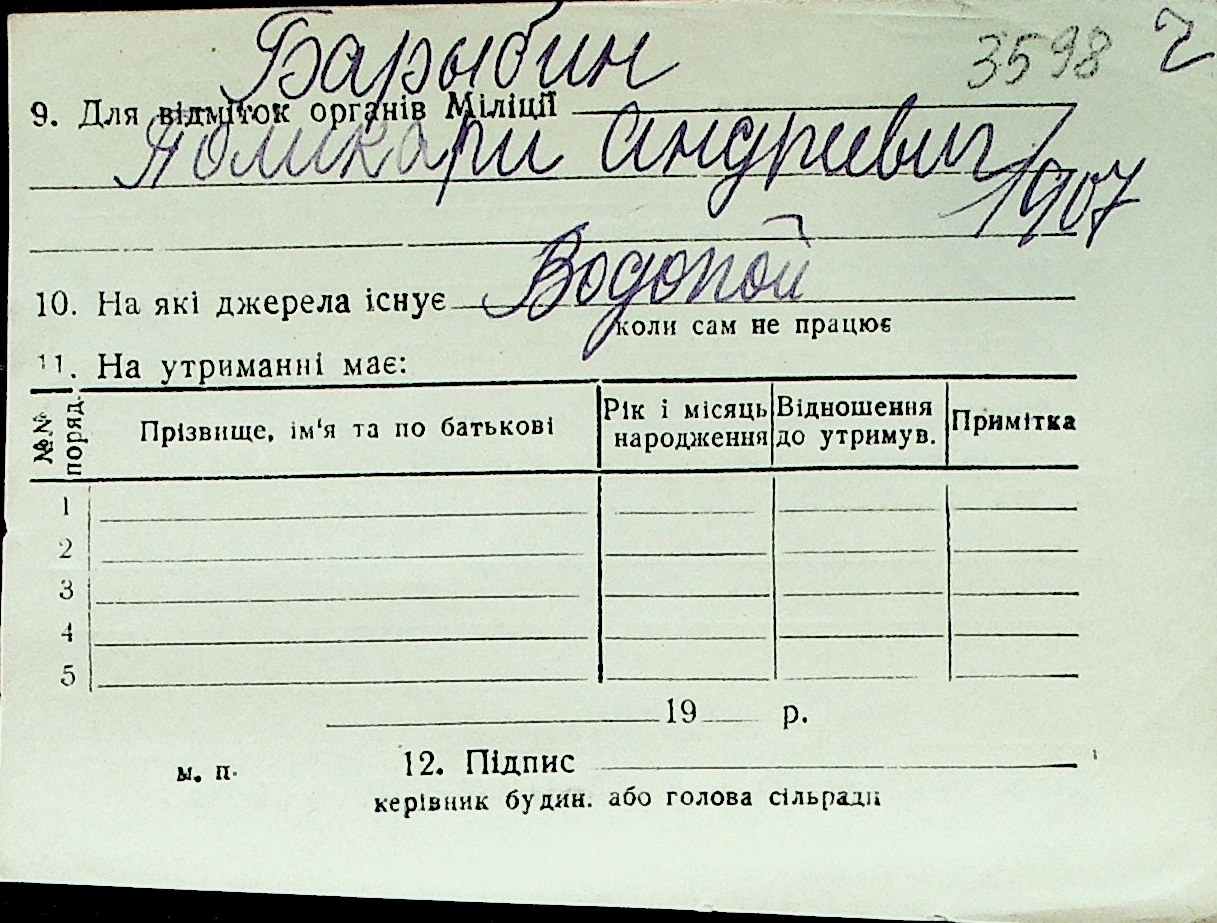 Барыбин 3598 2
9. Для відміток органів Міліції
Поликари Андреевич 1907
Водопой
10. На які джерела існує
коли сам не працює
11. На утриманні має:
№№ поряд. Прізвище, ім'я та по батькові Рік і місяць народження Відношення до утримув. Примітка
1
2
3
4
5
19 р.
м. п. 12. Підпис
керівник будин. або голова сільради